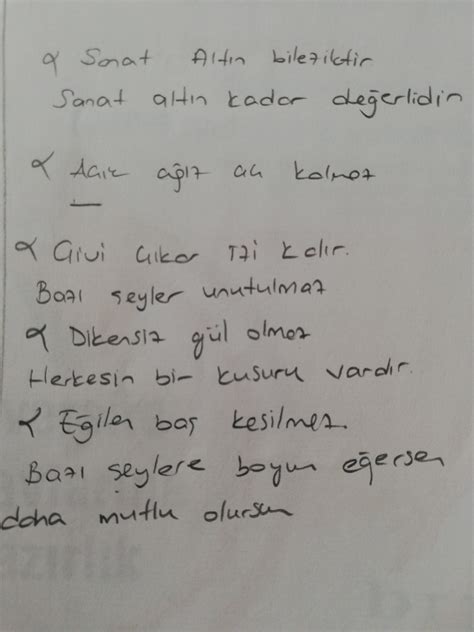 ∝ Sanat Altın bileziktir
Sanat altın kadar değerlidir
∝ Açık ağız aç kalmaz
∝ Çivi çıkar izi kalır.
Bazı şeyler unutulmaz
∝ Dikensiz gül olmaz
Herkesin bir kusuru vardır.
∝ Eğilen baş kesilmez.
Bazı şeylere boyun eğersen
daha mutlu olursun